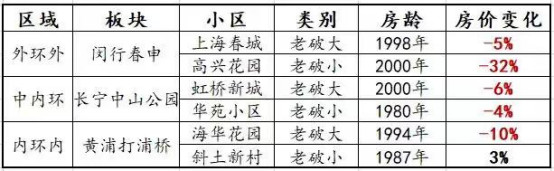 区域 板块 小区 类别 房龄 房价变化
外环外 闵行春申 上海春城 老破大 1998年 -5%
高兴花园 老破小 2000年 -32%
中内环 长宁中山公园 虹桥新城 老破大 2000年 -6%
华苑小区 老破小 1980年 -4%
内环内 黄浦打浦桥 海华花园 老破大 1994年 -10%
斜土新村 老破小 1987年 3%